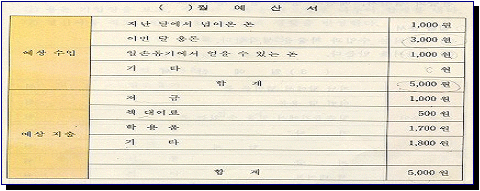 ( )월 예 산 서
예상 수입
지난 달에서 넘어온 돈 1,000 원
이번 달 용돈 3,000 원
일손돕기에서 얻을 수 있는 돈 1,000 원
기 타 원
합 계 5,000 원
예상 지출
저 금 1,000 원
책 대여료 500 원
학 용 품 1,700 원
기 타 1,800 원
합 계 5,000 원